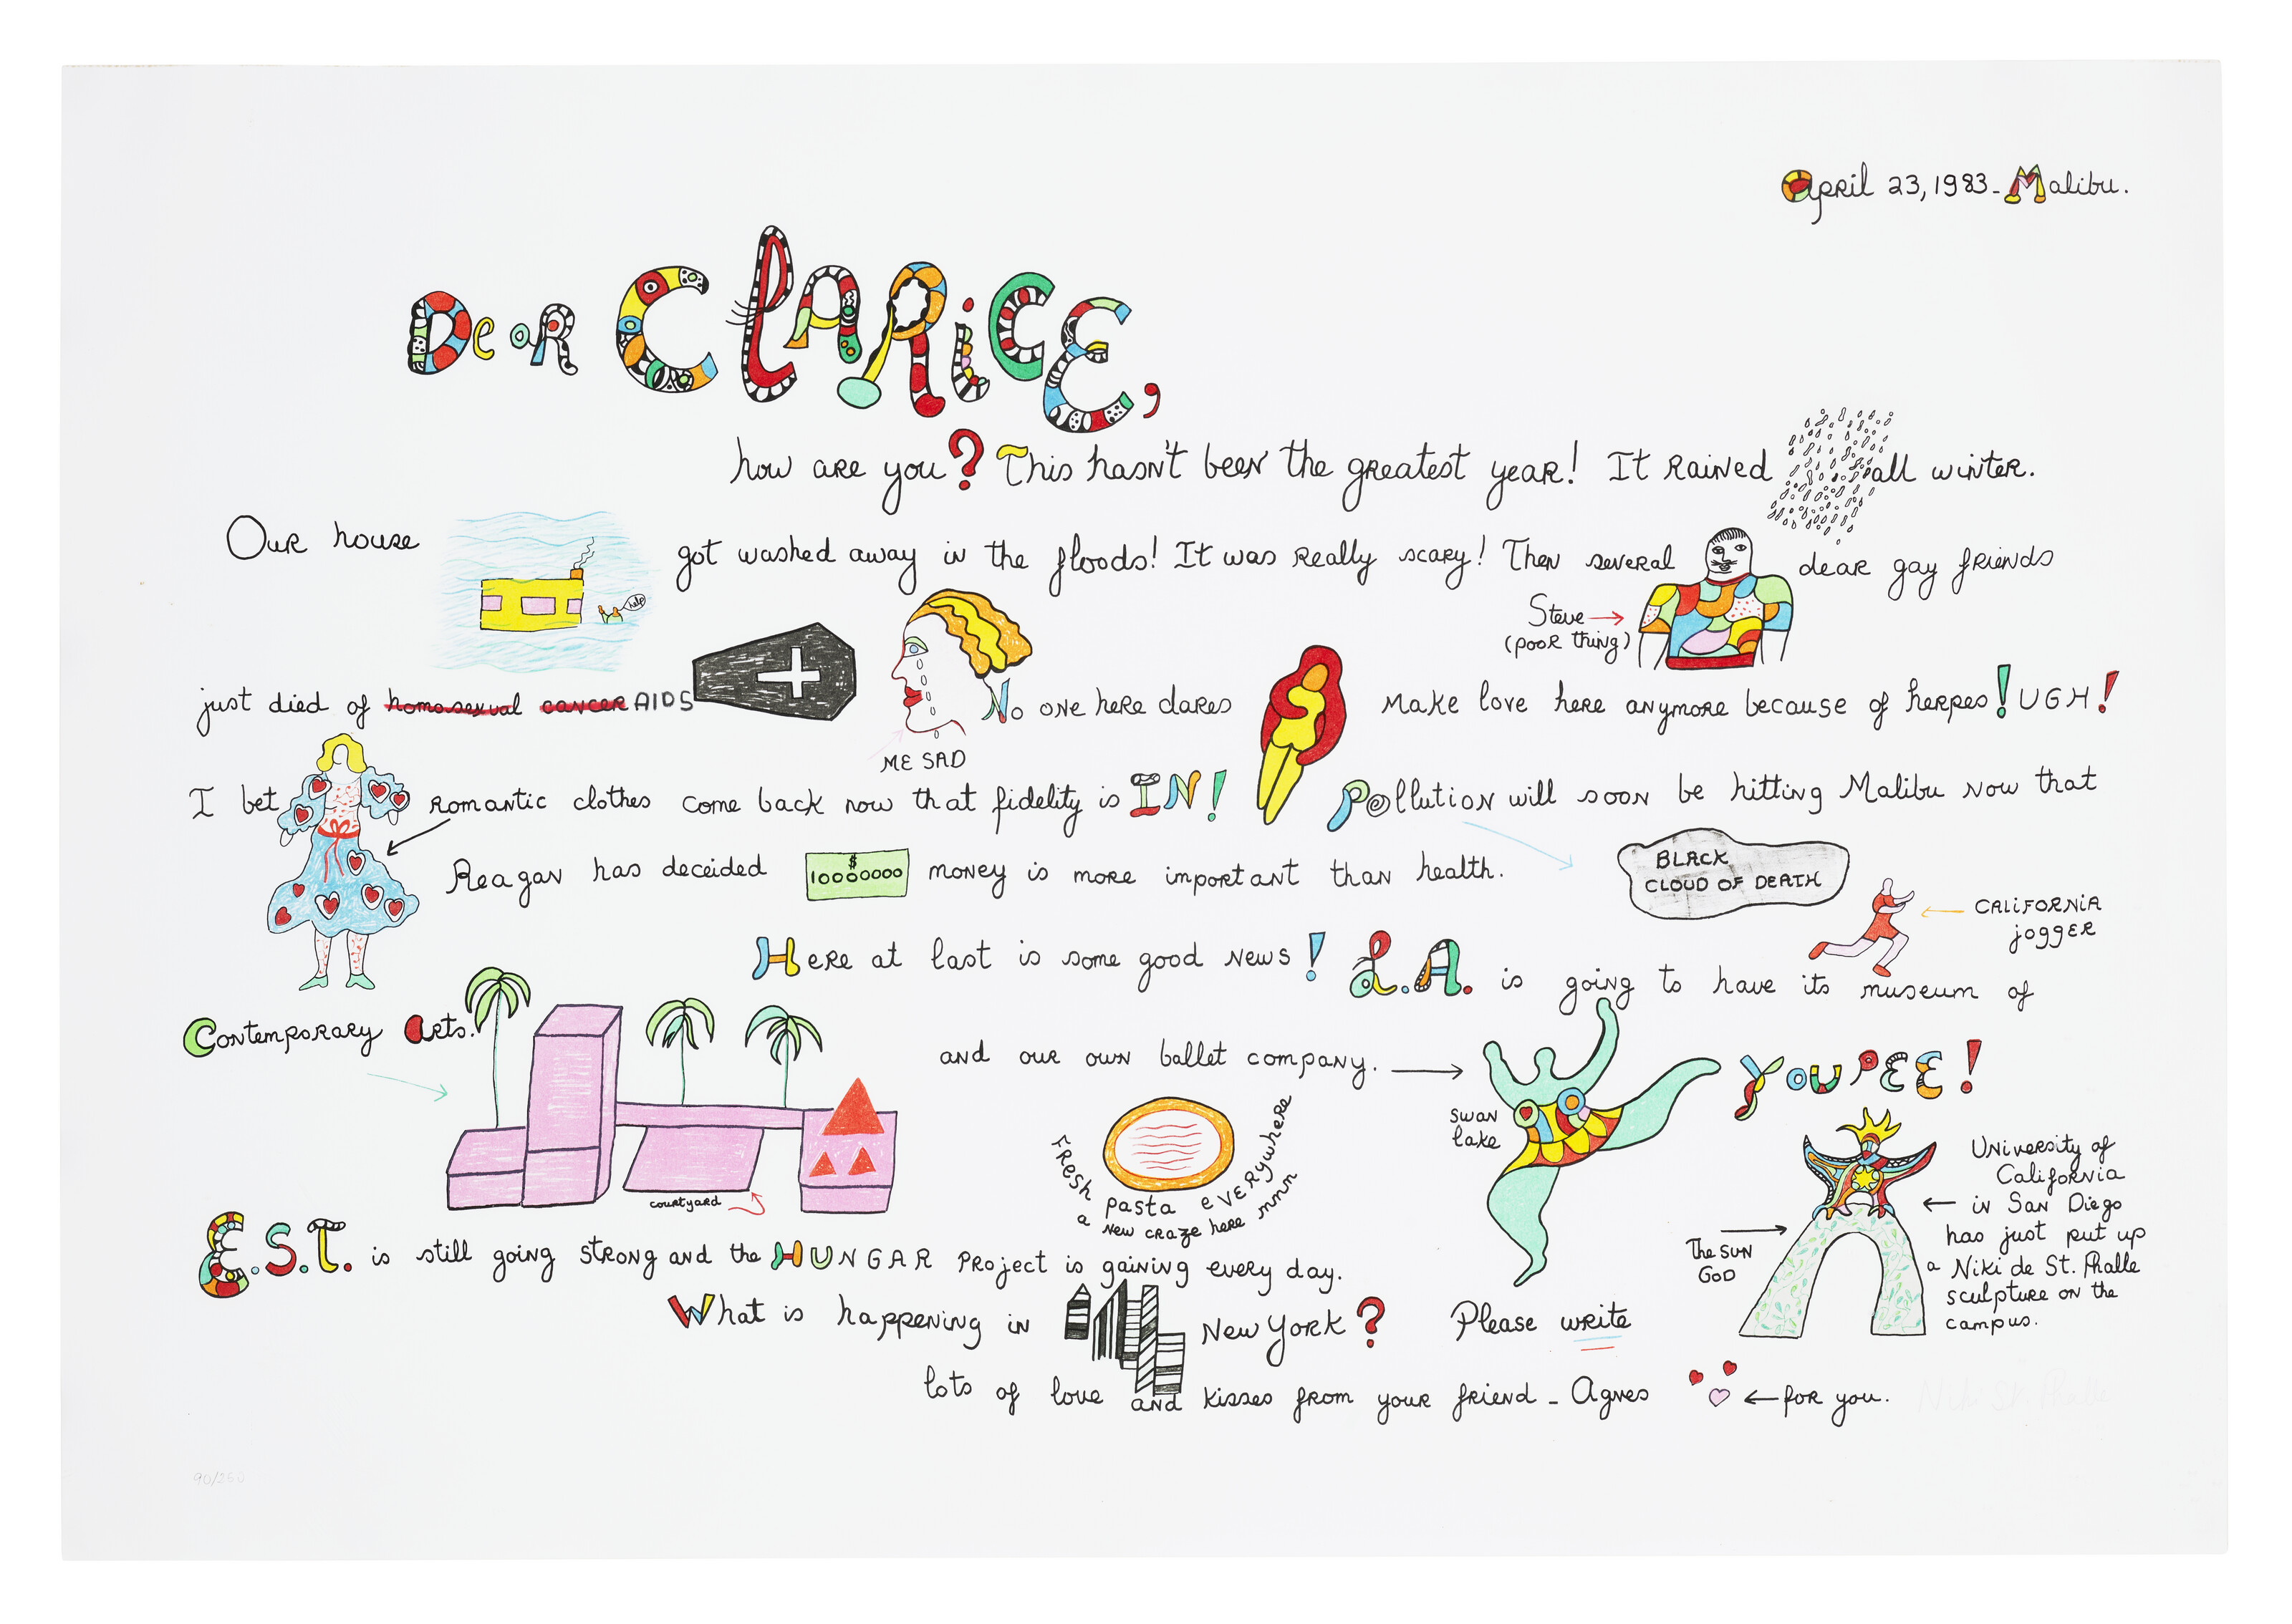 April 23, 1983 - Malibu.
Dear Clarice,
how are you? This hasn't been the greatest year! It rained all winter.
Our house got washed away in the floods! It was really scary! Then several dear gay friends
help
Steve
(poor thing)
just died of homosexual cancer AIDS No one here dares make love here anymore because of herpes! UGH!
ME SAD
I bet romantic clothes come back now that fidelity is IN! Pollution will soon be hitting Malibu now that
Reagan has decided money is more important than health.
$
10000000
BLACK
CLOUD OF DEATH
CALIFORNIA
jogger
Here at last is some good news! L.A. is going to have its museum of
Contemporary Arts. and our own ballet company. YOUPEE!
swan
lake
courtyard
Fresh pasta everywhere
a new craze here mmm
The SUN
GOD
University of
California
in San Diego
has just put up
a Niki de St. Phalle
sculpture on the
campus.
E.S.T. is still going strong and the HUNGAR Project is gaining every day.
What is happening in New York? Please write
lots of love and kisses from your friend - Agnes for you.
Niki St. Phalle
90/250